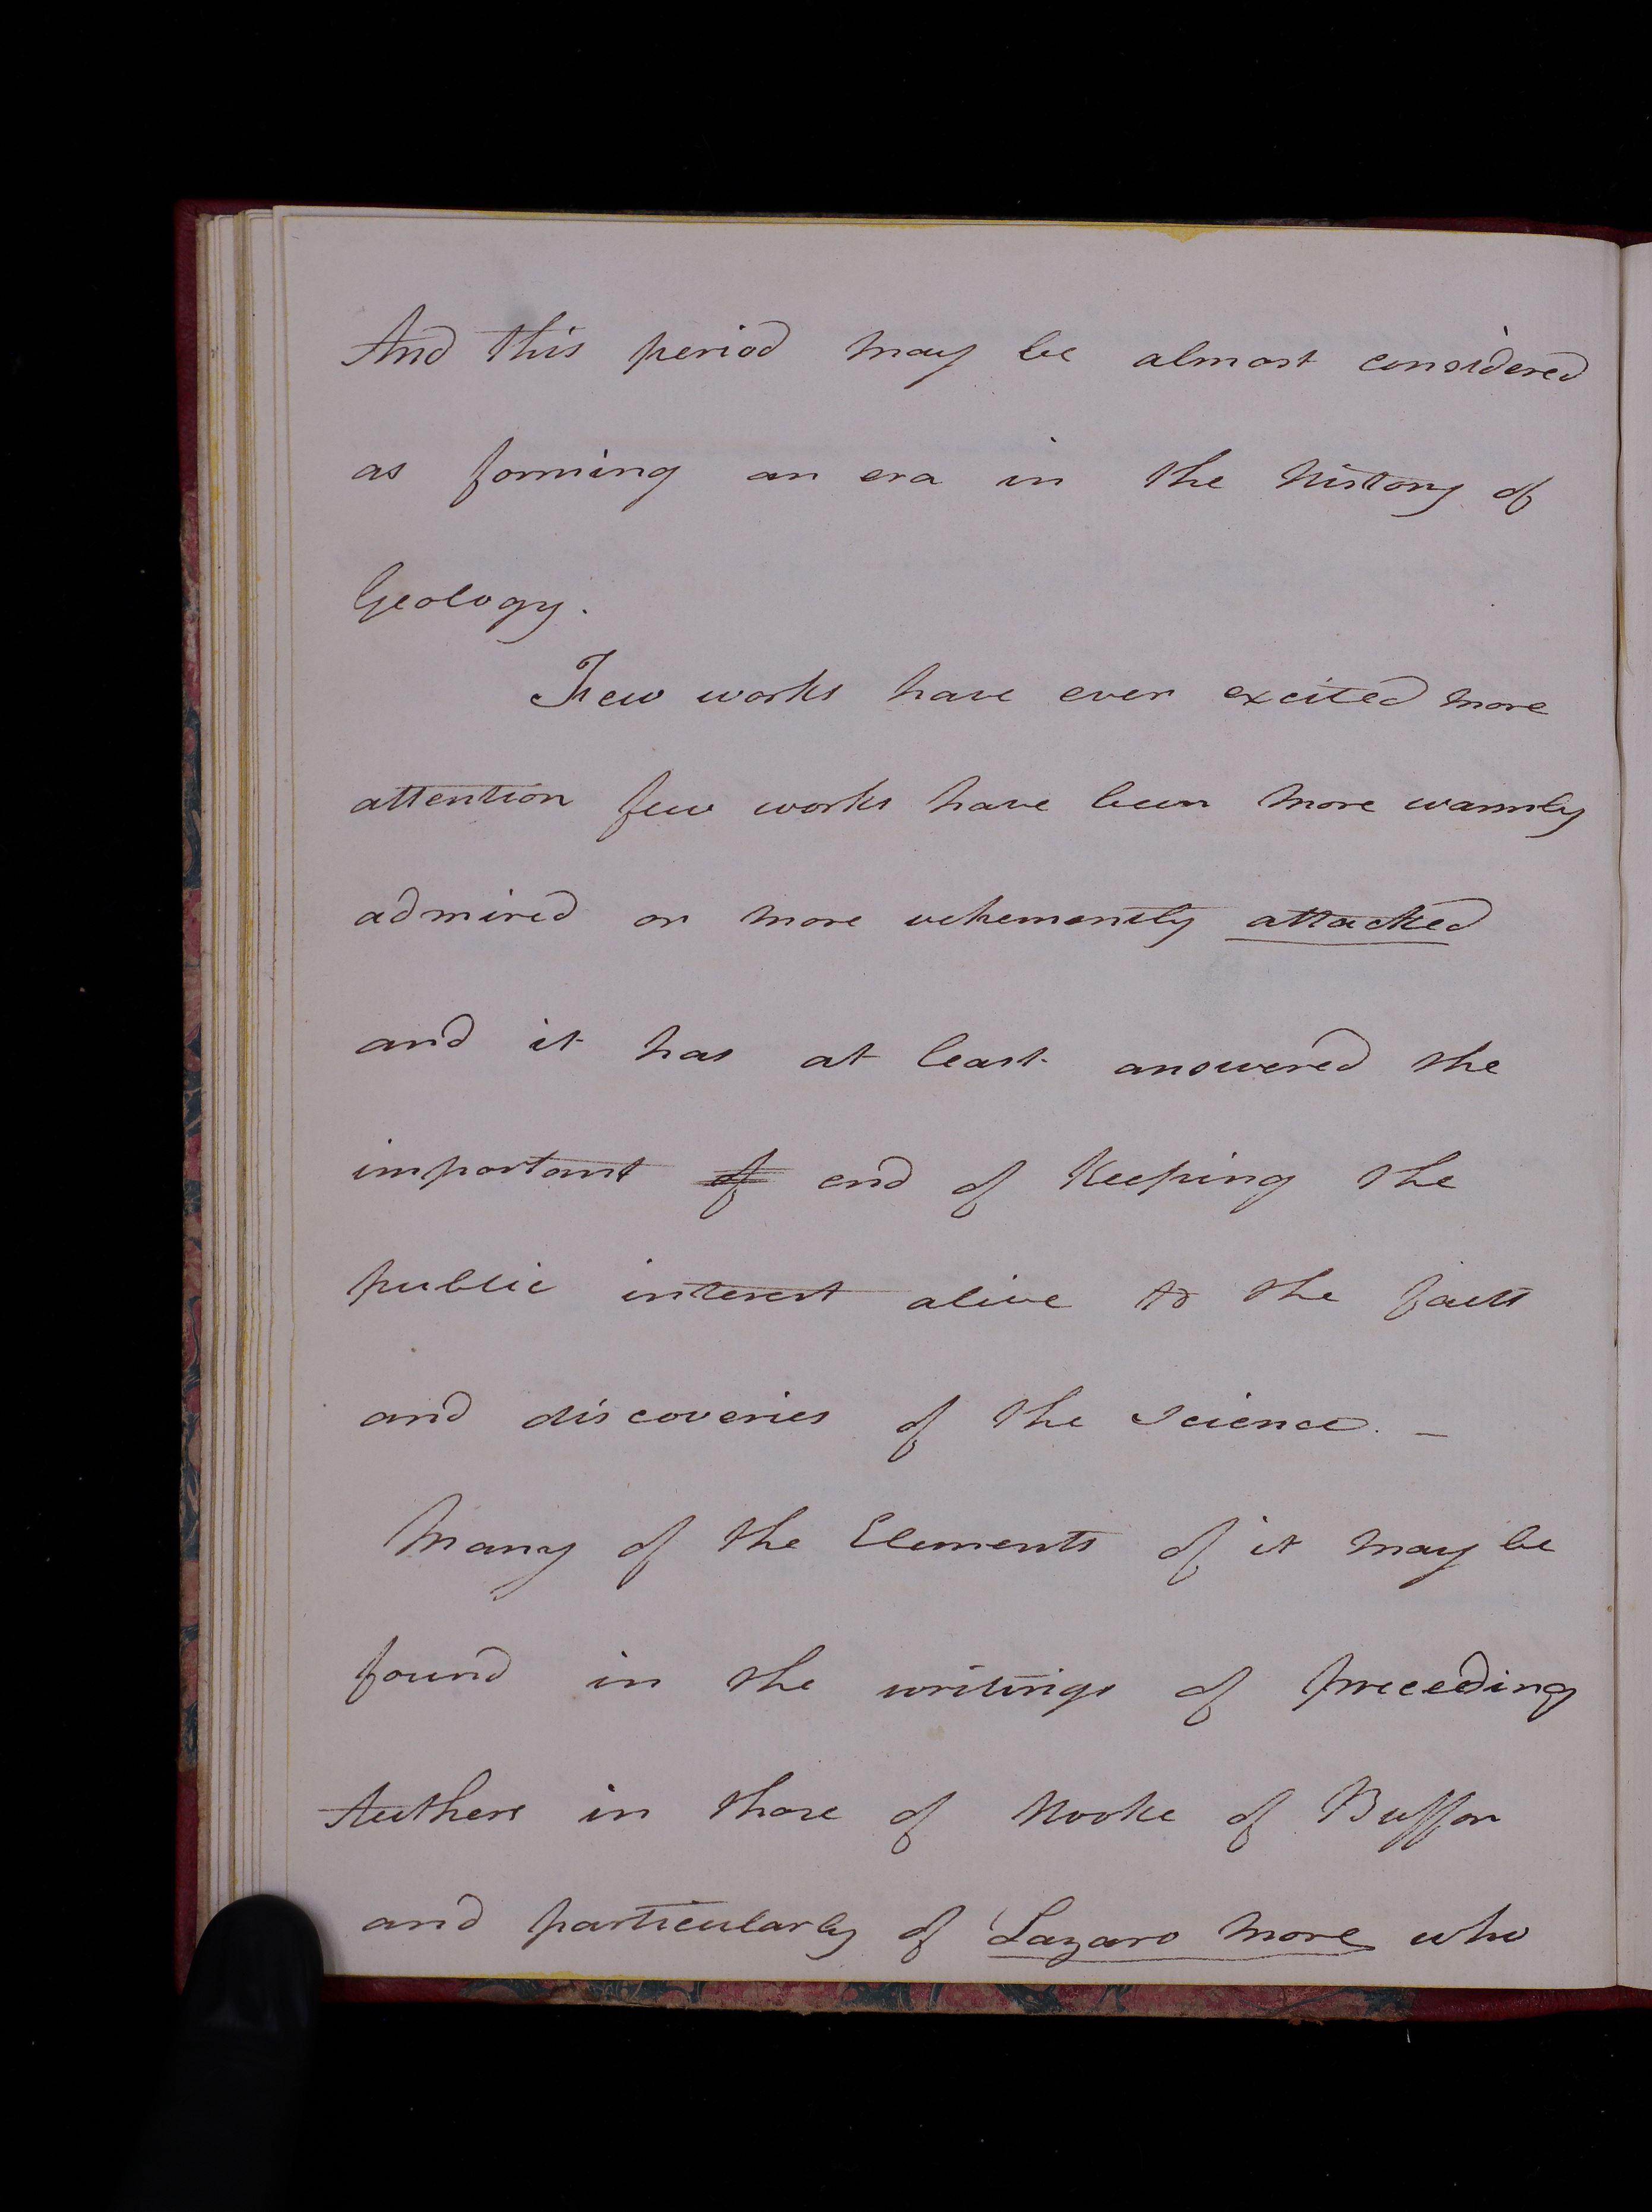 And this period may be almost considered
as forming an era in the history of
Geology.
Few works have ever excited more
attention few works have been more warmly
admired or more vehemently attacked
and it has at least answered the
important of end of keeping the
public interest alive to the facts
and discoveries of the science. –
Many of the Elements of it may be
found in the writings of preceeding
Authers in those of Hooke of Buffon
and particularly of Lazaro More who